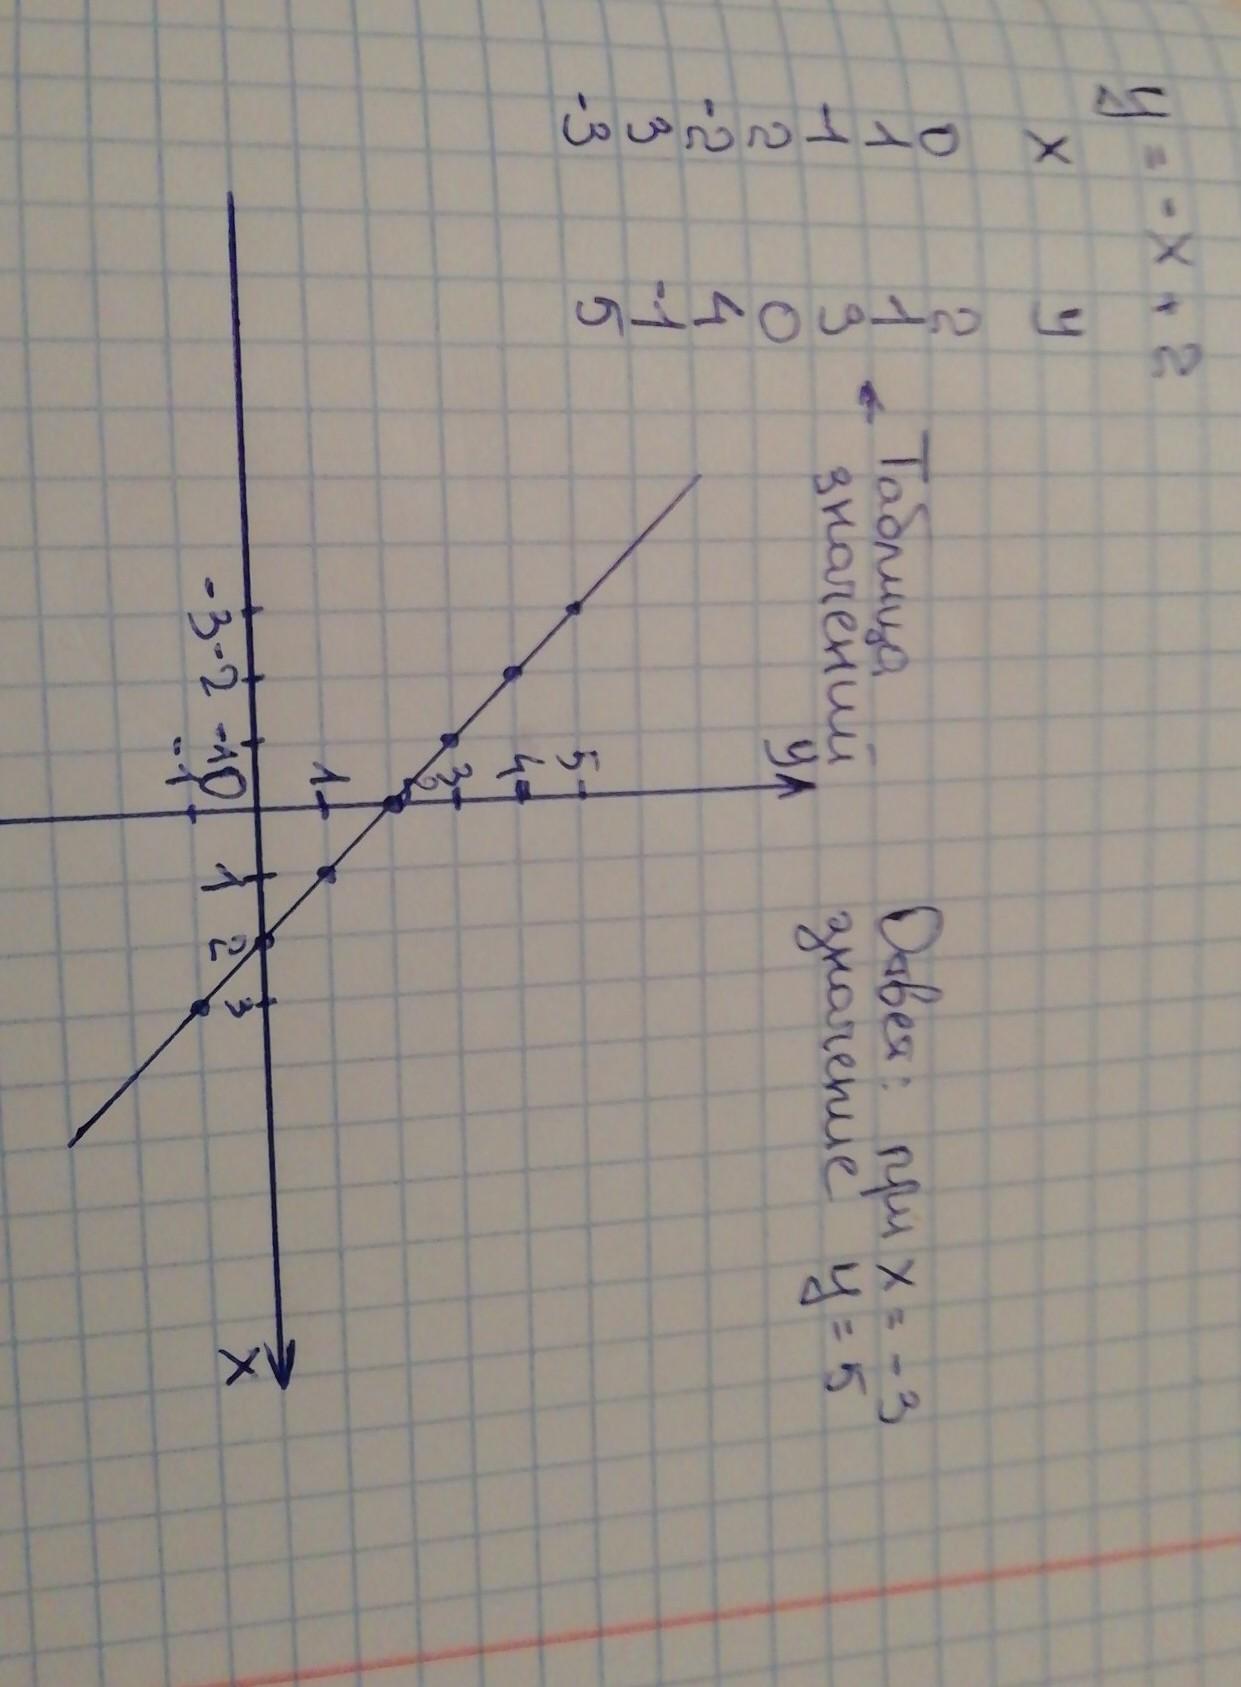 y = -x + 2
x y
0 2
1 1
-1 3
2 0
-2 4
3 -1
-3 5
← Таблица
значений
Ответ: при x = -3
значение y = 5
y
5
4
3
2
1
-3 -2 -1 0 1 2 3
-1
x